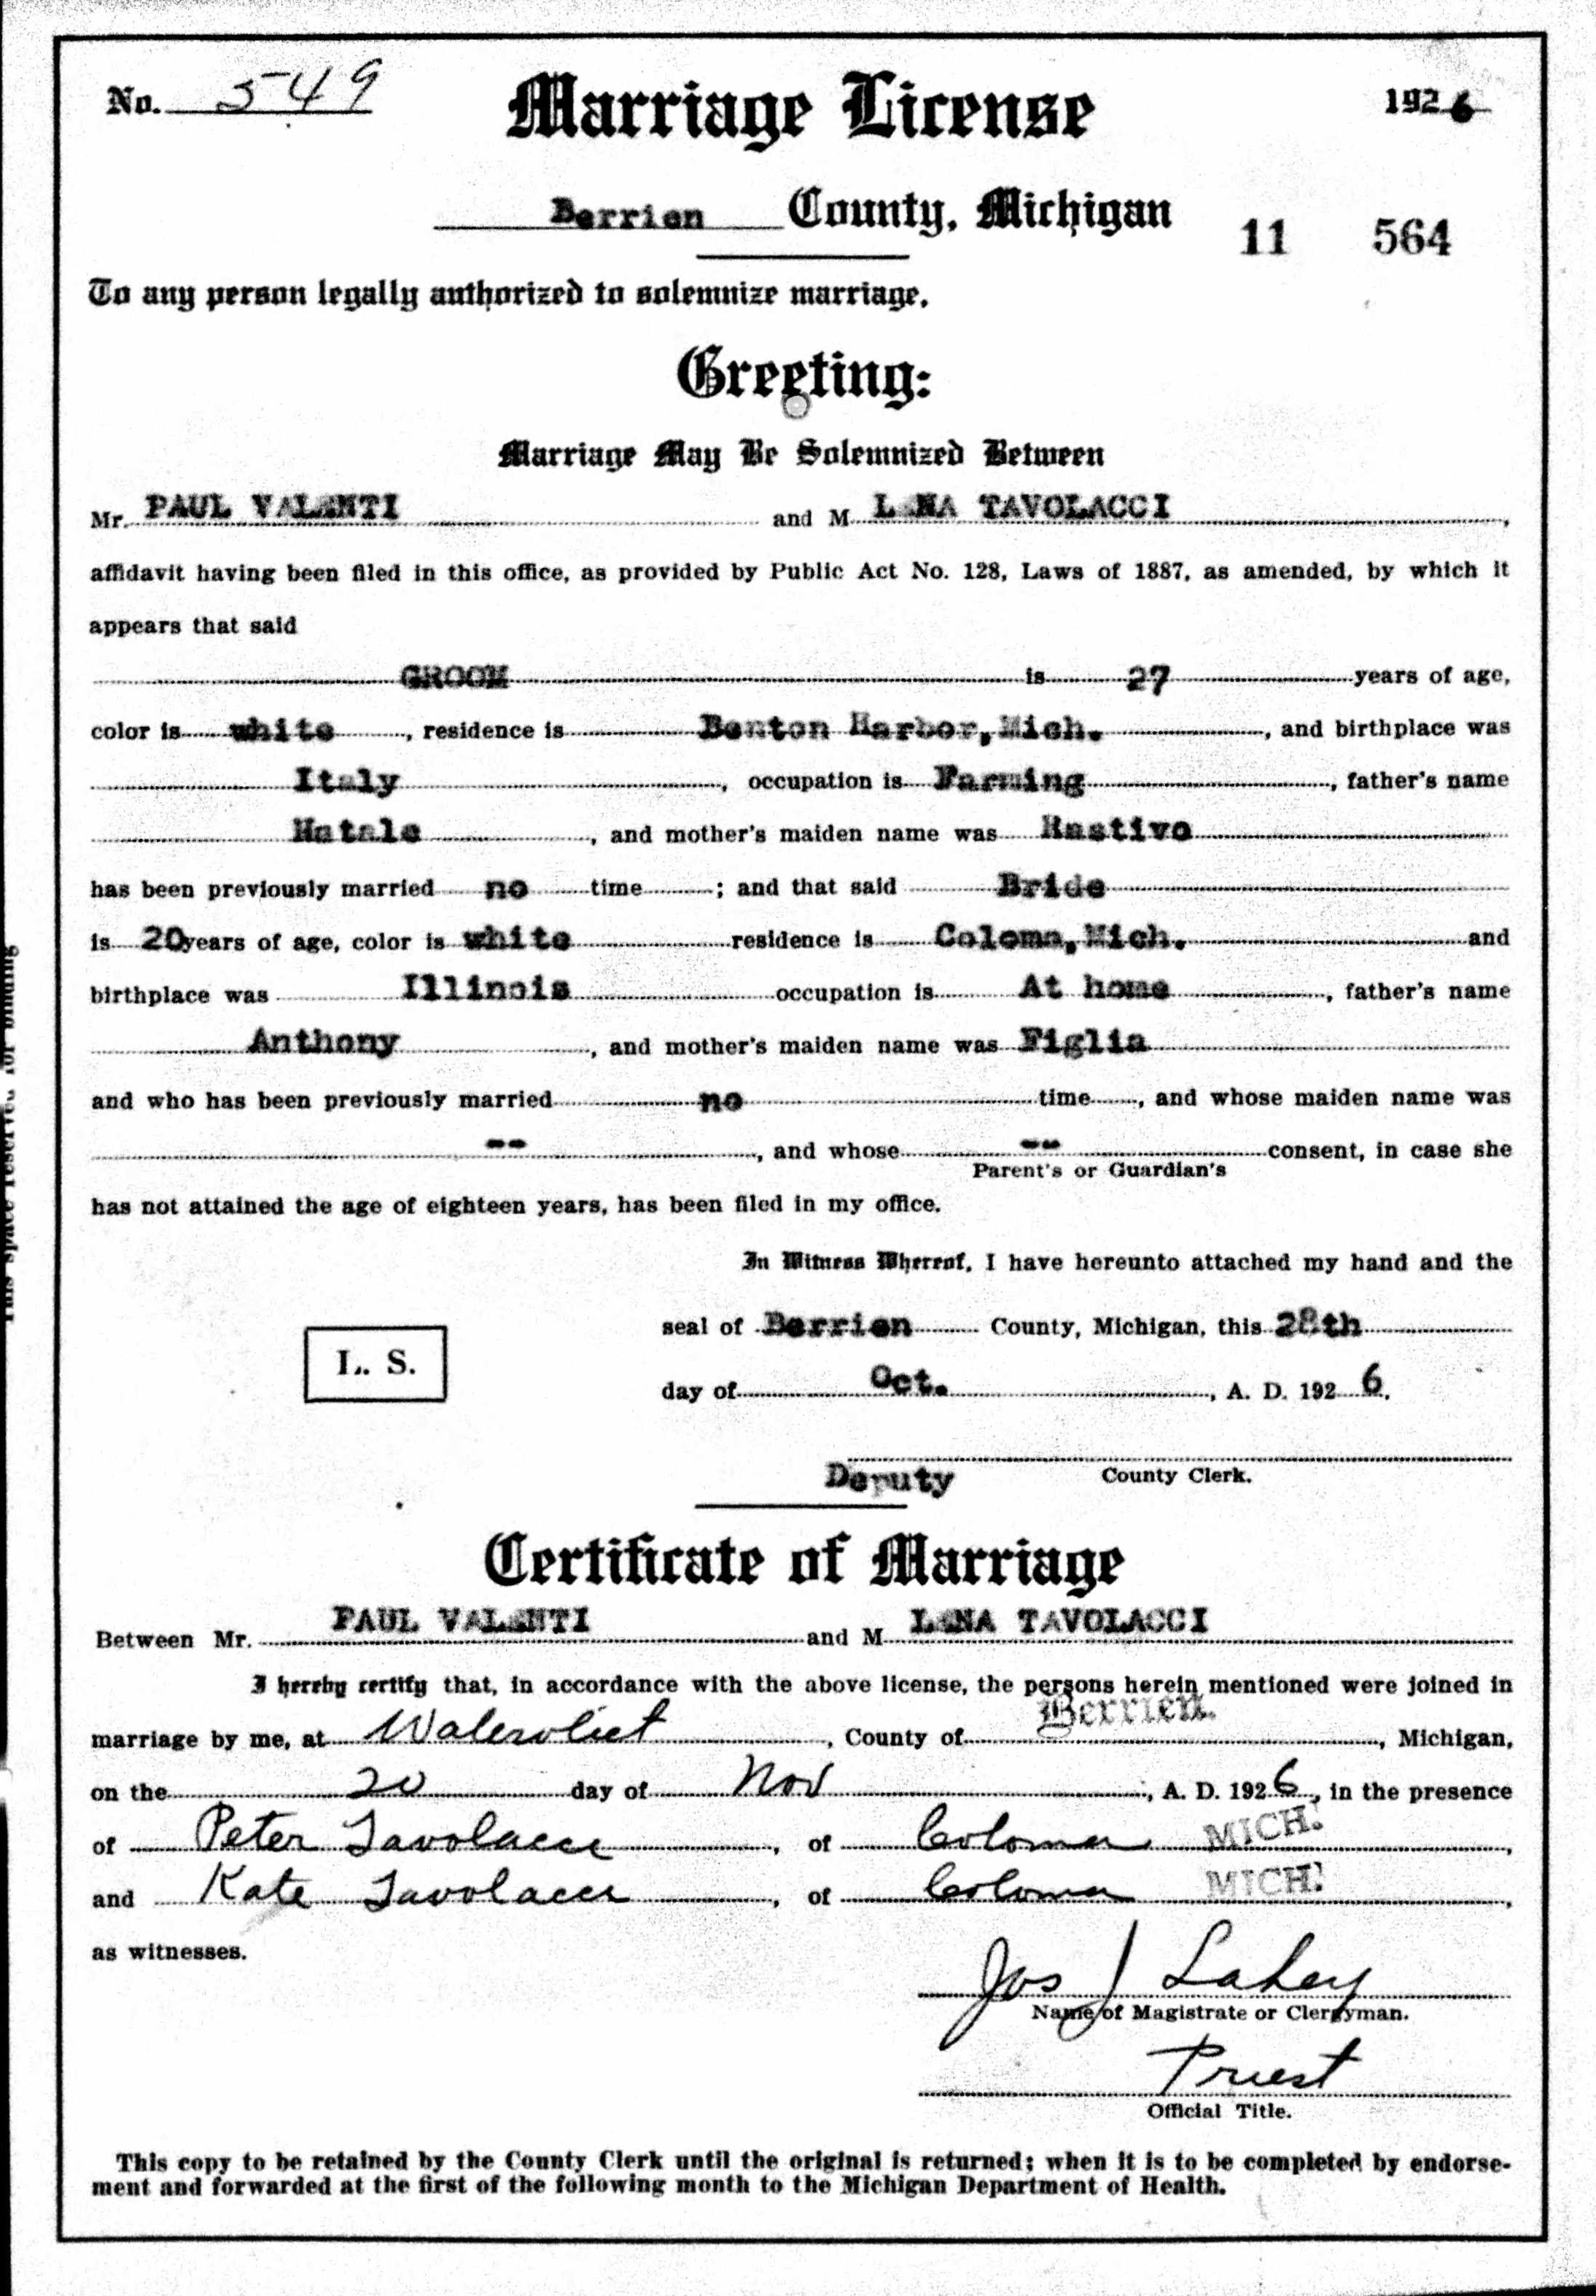 No. 549 Marriage License 1926
Berrien County, Michigan 11 564
To any person legally authorized to solemnize marriage,
Greeting:
Marriage May Be Solemnized Between
Mr. PAUL VALENTI and M LENA TAVOLACCI,
affidavit having been filed in this office, as provided by Public Act No. 128, Laws of 1887, as amended, by which it
appears that said
GROOM is 27 years of age,
color is white, residence is Benton Harbor, Mich., and birthplace was
Italy, occupation is Farming, father's name
Natale, and mother's maiden name was Rastivo
has been previously married no time; and that said Bride
is 20 years of age, color is white residence is Coloma, Mich. and
birthplace was Illinois occupation is At home, father's name
Anthony, and mother's maiden name was Figlia
and who has been previously married no time, and whose maiden name was
--, and whose -- consent, in case she
Parent's or Guardian's
has not attained the age of eighteen years, has been filed in my office.
In Witness Whereof, I have hereunto attached my hand and the
seal of Berrien County, Michigan, this 28th
L. S.
day of Oct., A. D. 1926.
Deputy County Clerk.
Certificate of Marriage
Between Mr. PAUL VALENTI and M LENA TAVOLACCI
I hereby certify that, in accordance with the above license, the persons herein mentioned were joined in
marriage by me, at Watervliet, County of Berrien, Michigan,
on the 20 day of Nov, A. D. 1926, in the presence
of Peter Tavolacci, of Coloma MICH.,
and Kate Tavolacci, of Coloma MICH.,
as witnesses.
Jos J Lahey
Name of Magistrate or Clergyman.
Priest
Official Title.
This copy to be retained by the County Clerk until the original is returned; when it is to be completed by endorse-
ment and forwarded at the first of the following month to the Michigan Department of Health.
This space reserved for binding